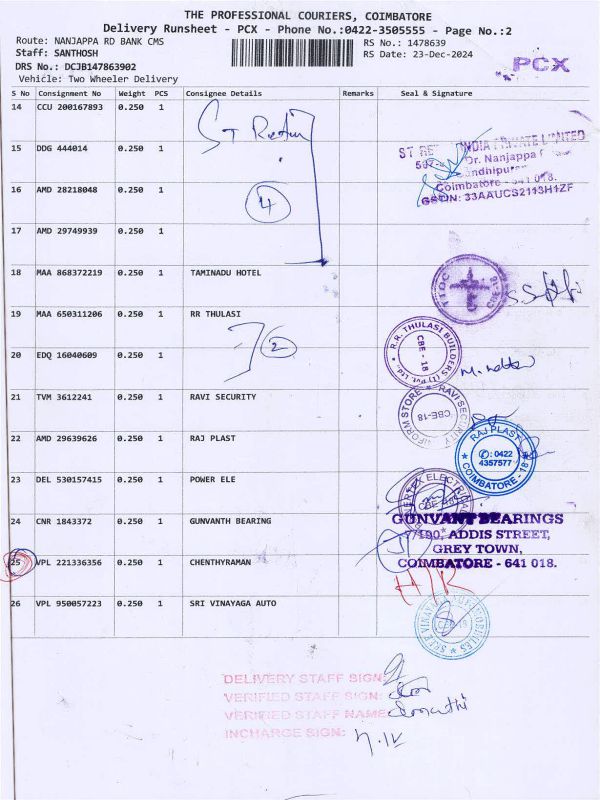 THE PROFESSIONAL COURIERS, COIMBATORE
Delivery Runsheet - PCX - Phone No.:0422-3505555 - Page No.:2
Route: NANJAPPA RD BANK CMS
RS No.: 1478639
Staff: SANTHOSH
RS Date: 23-Dec-2024
DRS No.: DCJB147863902
Vehicle: Two Wheeler Delivery
PCX
S No Consignment No Weight PCS Consignee Details Remarks Seal & Signature
14 CCU 200167893 0.250 1
ST
15 DDG 444014 0.250 1
ST INDIA PRIVATE LIMITED
Dr. Nanjappa
Gandhipuram
Coimbatore - 641 018.
GSTIN: 33AAUCS2113H1ZF
16 AMD 28218048 0.250 1
4
17 AMD 29749939 0.250 1
18 MAA 868372219 0.250 1 TAMINADU HOTEL
19 MAA 650311206 0.250 1 RR THULASI
R.R. THULASI BUILDERS (I) Pvt. Ltd.,
CBE - 18
20 EDQ 16040609 0.250 1
2
21 TVM 3612241 0.250 1 RAVI SECURITY
RAVI SECURITY UNIFORM STORE
CBE-18
22 AMD 29639626 0.250 1 RAJ PLAST
RAJ PLAST
✆: 0422
4357577
COIMBATORE - 18
23 DEL 530157415 0.250 1 POWER ELE
24 CNR 1843372 0.250 1 GUNVANTH BEARING
GUNVANT BEARINGS
7/190, ADDIS STREET,
GREY TOWN,
COIMBATORE - 641 018.
25 VPL 221336356 0.250 1 CHENTHYRAMAN
26 VPL 950057223 0.250 1 SRI VINAYAGA AUTO
SREE VINAYAGA AUTOMOBILES
DELIVERY STAFF SIGN:
VERIFIED STAFF SIGN:
VERIFIED STAFF NAME:
INCHARGE SIGN: